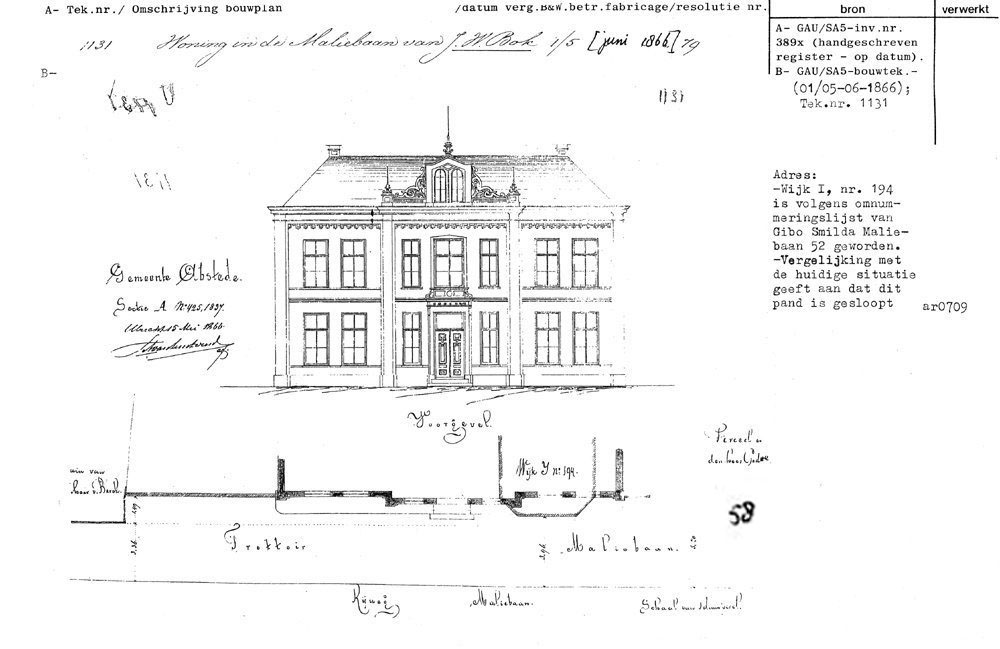 A- Tek.nr./ Omschrijving bouwplan
/datum verg.B&W.betr.fabricage/resolutie nr.
bron
verwerkt
1131 Woning in de Maliebaan van J. W. Bok 1/5 [juni 1866] 79
A- GAU/SA5-inv.nr.
389x (handgeschreven
register - op datum).
B- GAU/SA5-bouwtek.-
(01/05-06-1866);
Tek.nr. 1131
B-
1131
1131
Adres:
-Wijk I, nr. 194
is volgens omnum-
meringslijst van
Gibo Smilda Malie-
baan 52 geworden.
-Vergelijking met
de huidige situatie
geeft aan dat dit
pand is gesloopt
ar0709
Gemeente Abstede.
Sectie A No 425, 1837.
Utrecht 15 Mei 1866
Voorgevel.
Perceel
den heer
van
Wijk I No 194.
58
Trottoir
Maliebaan.
Rijweg
Maliebaan.
Schaal van